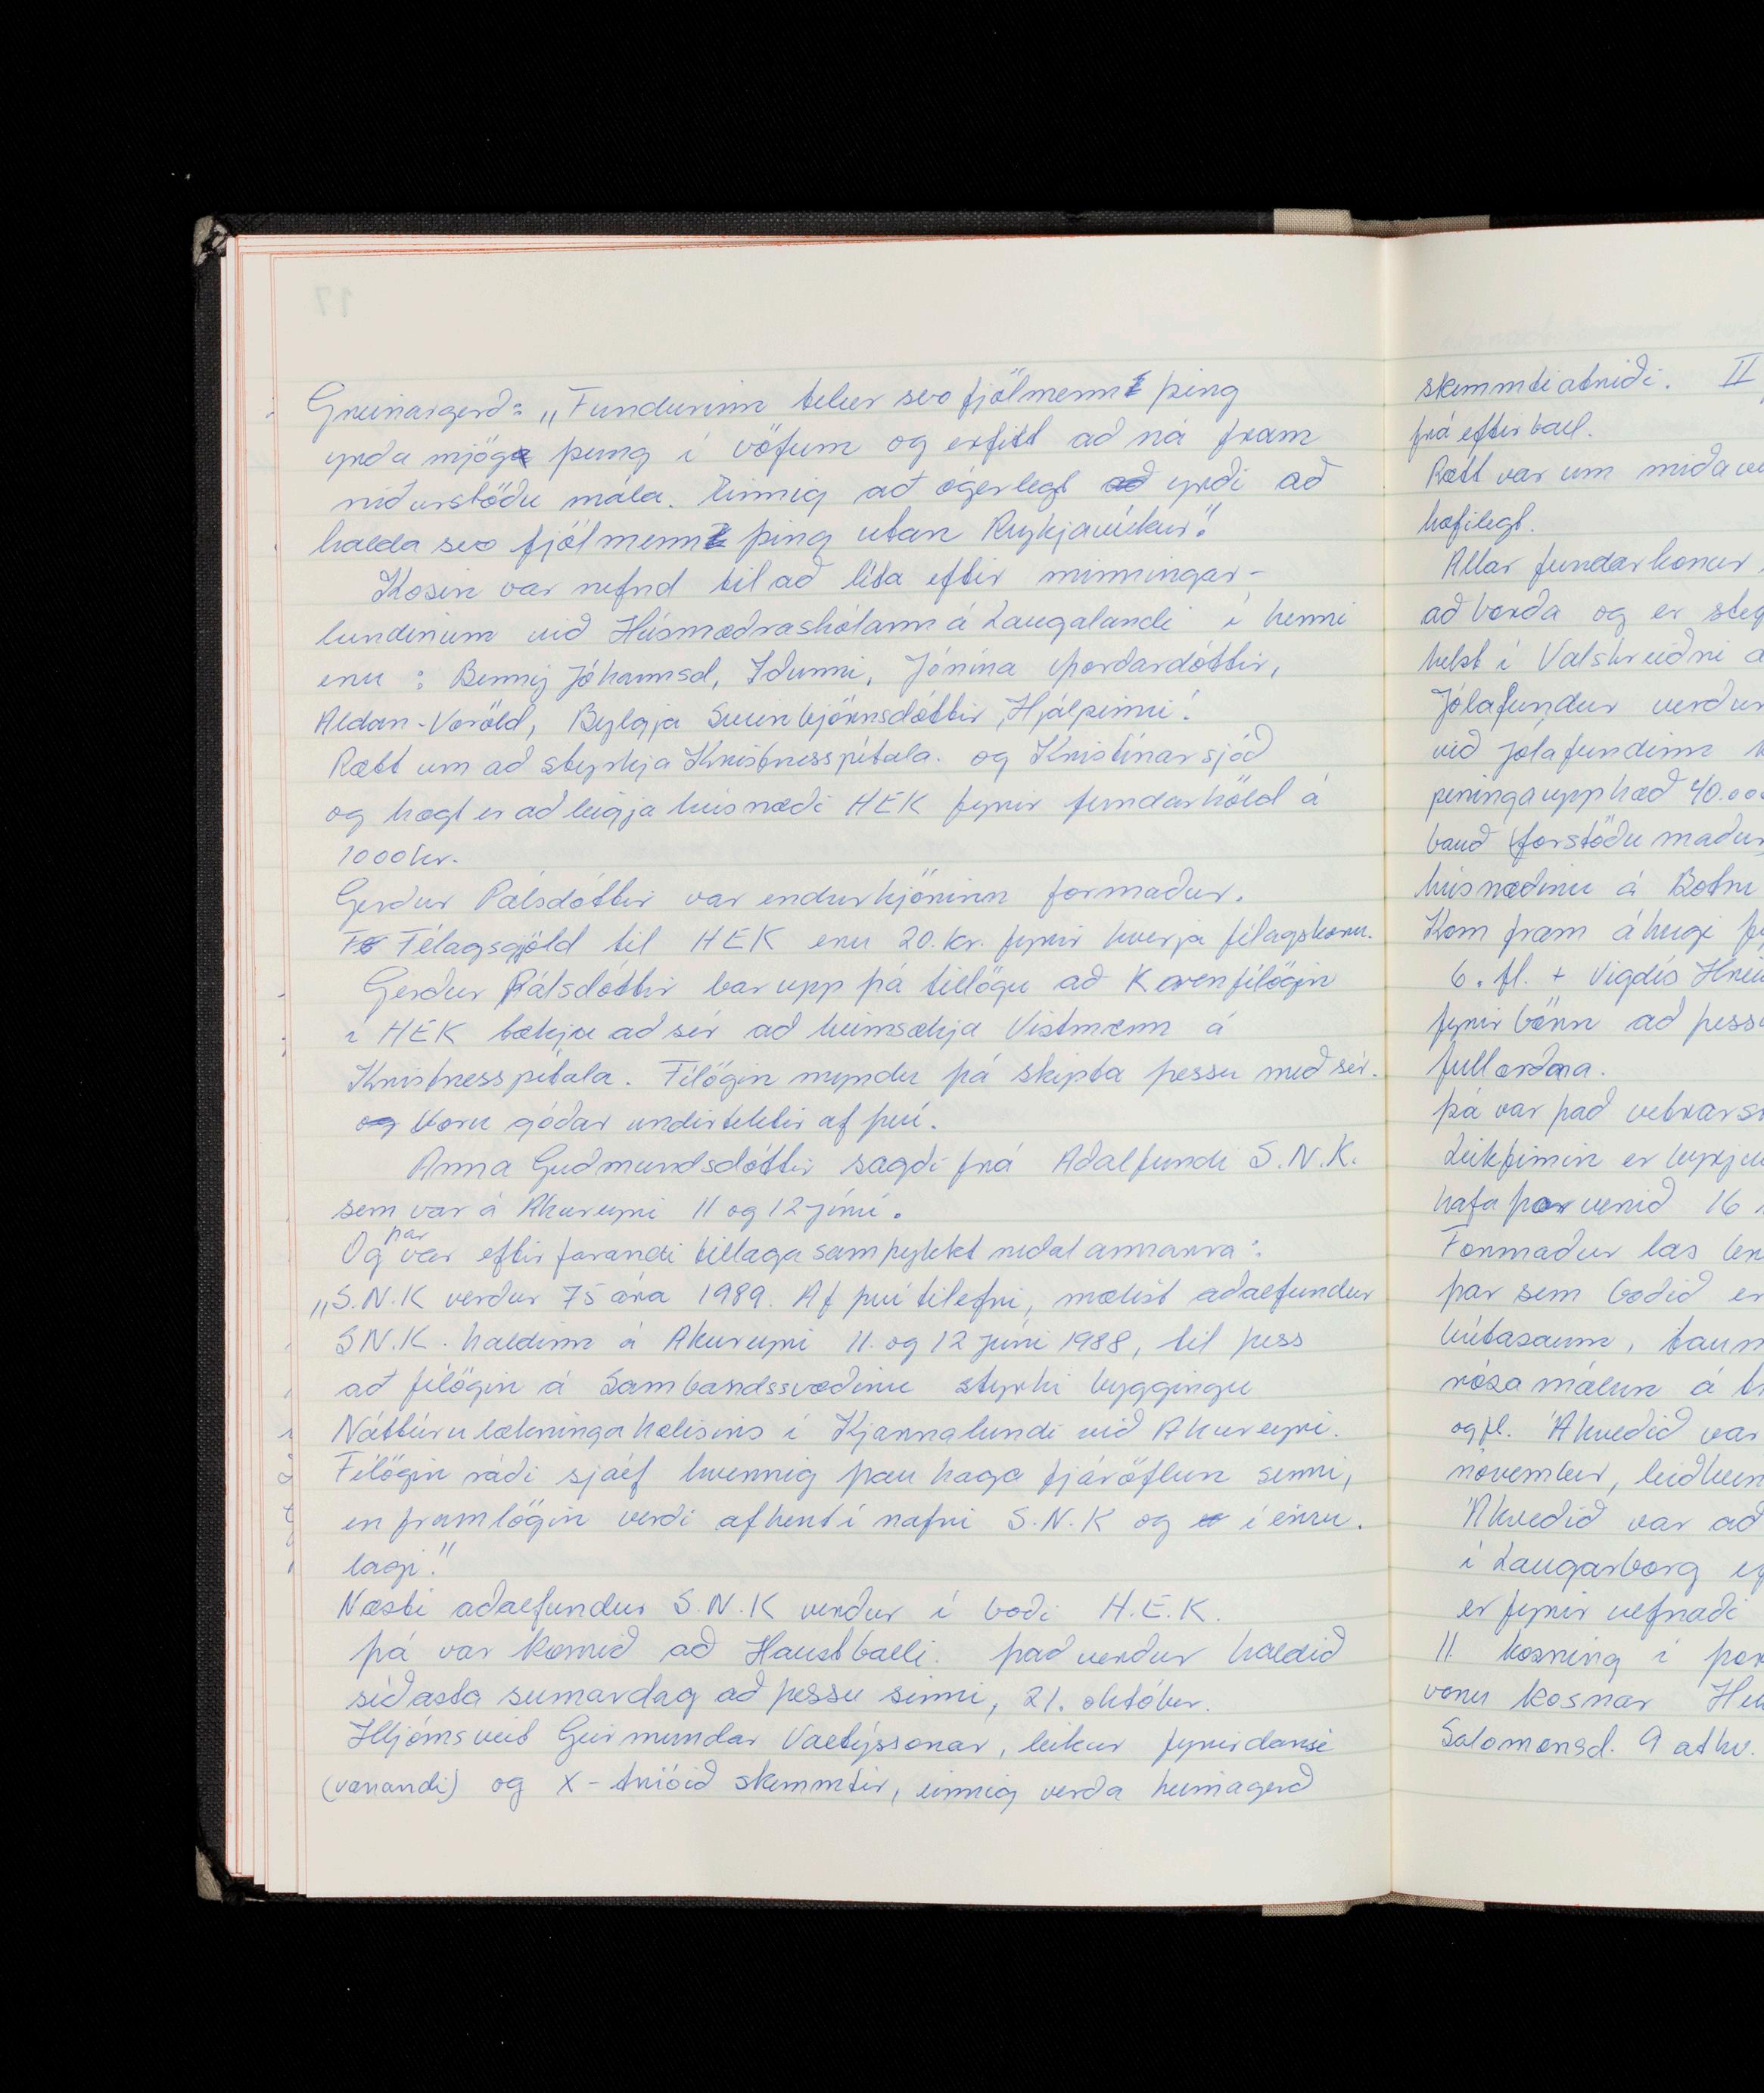 Greinargerð: „Fundurinn telur svo fjölmennt þing
yrða mjög þung í vöfum og erfitt að ná fram
niðurstöðu mála. Einnig að ógerlegt að yrði að
halda svo fjölmennt þing utan Reykjavíkur."
Kosin var nefnd til að líta eftir minningar-
lundinum við Húsmæðraskólann á Laugalandi í henni
eru : Benný Jóhannsd, Iðunni, Jónína Þórðardóttir,
Aldan-Voröld, Bylgja Sveinbjörnsdóttir, Hjálpinni.
Rætt um að styrkja Kristnesspítala. og Kristínarsjóð
og hægt er að leigja húsnæði HEK fyrir fundarhöld á
1000 kr.
Gerður Pálsdóttir var endurkjörinn formaður.
Fé Félagsgjöld til HEK eru 20. kr. fyrir hverja félagskonu.
Gerður Pálsdóttir bar upp þá tillögu að Kvenfélögin
í HEK tækju að sér að heimsækja Vistmenn á
Kristnesspítala. Félögin myndu þá skipta þessu með sér.
og Voru góðar undirtektir af því.
Anna Guðmundsdóttir sagði frá Aðalfundi S.N.K.
sem var á Akureyri 11 og 12 júní.
Og þar var eftirfarandi tillaga samþykkt meðal annarra:
„S.N.K verður 75 ára 1989. Af því tilefni, mælist aðalfundur
S.N.K. haldinn á Akureyri 11. og 12 júní 1988, til þess
að félögin á Sambandssvæðinu styrki byggingu
Náttúrulækningahælisins í Kjarnalundi við Akureyri.
Félögin ráði sjálf hvernig þau haga fjáröflun sinni,
en framlögin verði afhent í nafni S.N.K og í einu.
lagi."
Næsti aðalfundur S.N.K verður í boði H.E.K.
Þá var komið að Haustballi. Það verður haldið
síðasta sumardag að þessu sinni, 21. október.
Hljómsveit Geirmundar Valtýssonar, leikur fyrir dansi
(vonandi) og X-tríóið skemmtir, einnig verða heimagerð
skemmtiatriði. II
frá eftir ball.
Rætt var um miðave
hæfilegt.
Allar fundarkonur
að borða og er steg
helst í Valskreiðni a
Jólafundur verður
við jólafundinn
peningaupphæð 40.000
bauð forstöðumaður
húsnæðinu á Botni
Kom fram áhugi fy
6. fl. + Vigdís Hrei
fyrir börn að þessu
fullorðna.
Þá var það vetrars
Leikfimin er byrju
hafa þar verið 16
Formaður las br
þar sem boðið er
bútasaum, taum
rósamálun á t
og fl. Ákveðið var
nóvember, leiðbein
Ákveðið var að
í Laugarborg ef
er fyrir vefnaði
11. kosning í þor
voru kosnar He
Salomonsd. 9 atkv.